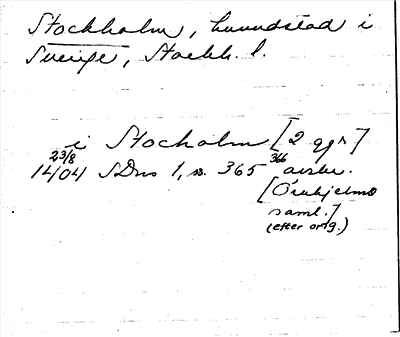 Stockholm, huvudstad i
Sverige, Stockh. l.
i Stocholm [2 ggr]
23/8
1404 SDns 1, s. 365 366 avskr.
[Örnhjelms
saml.]
(efter orig.)